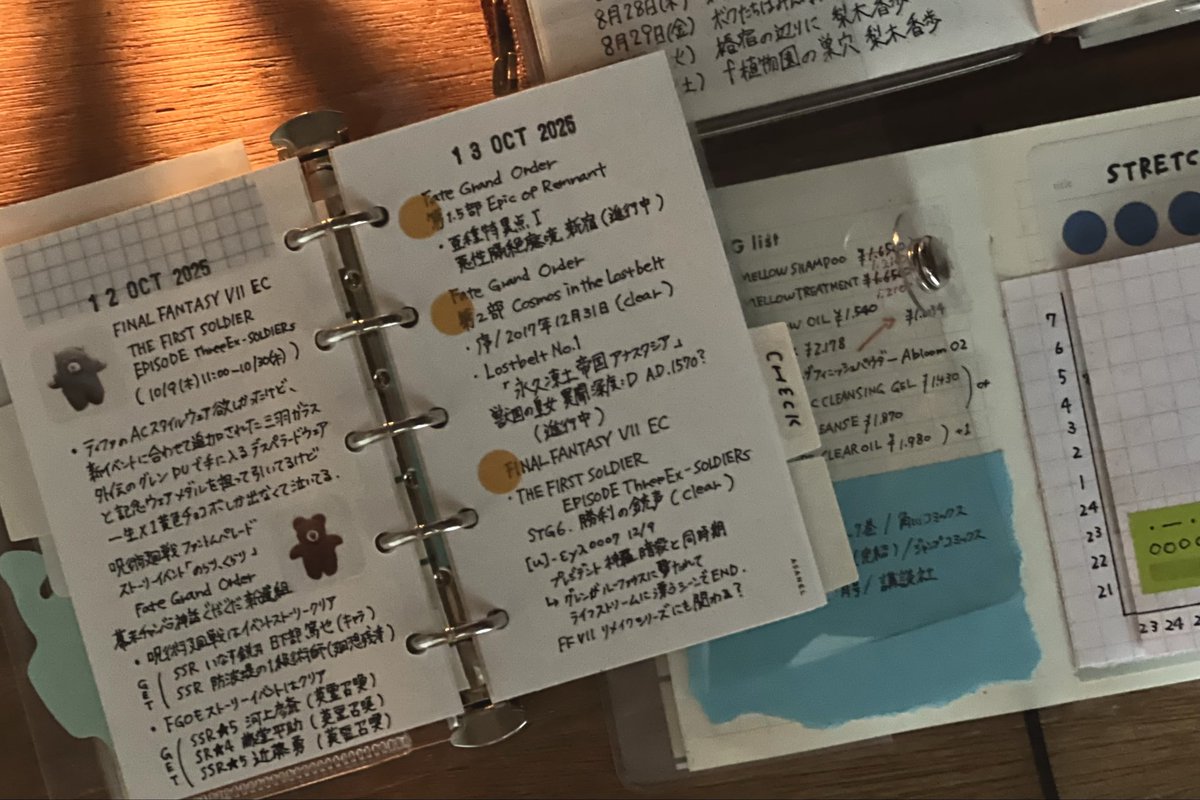 12 OCT 2025
FINAL FANTASY VII EC
THE FIRST SOLDIER
EPISODE ThreeEx-SOLDIERs
(10/9(木)11:00~10/30(木))
・ティファのACスタイルウェア欲しかったけど、
新イベントに合わせて追加された三羽ガラス
外伝のグレンDUで手に入るデスペラードウェア
と記念ウェアメダルを狙って引いてるけど
一生×1黄色チョコボしか出なくて泣いてる.
呪術廻戦 ファントムパレード
ストーリーイベント「のらりくらり」
Fate Grand Order
・呪術廻戦はイベントストーリークリア
GET
SSR いなす鉄刃 日下部篤也(キャラ)
SSR 防波堤の1級術師(廻想残滓)
・FGOもストーリーイベントはクリア
GET
SSR★5 河上彦斎 (英霊召喚)
SR★4 藤堂平助 (英霊召喚)
SSR★5 近藤勇 (英霊召喚)
13 OCT 2025
Fate Grand Order
第1.5部 Epic of Remnant
・亜種特異点 I
悪性隔絶魔境 新宿(進行中)
Fate Grand Order
第2部 Cosmos in the Lostbelt
・序/2017年12月31日(clear)
・Lostbelt No.1
「永久凍土帝国アナスタシア」
獣国の皇女 異聞深度:D A.D.1570?
(進行中)
FINAL FANTASY VII EC
・THE FIRST SOLDIER
EPISODE ThreeEx-SOLDIERs
STG6. 勝利の銃声(clear)
[μ]-εγλ 0007 12/9
プレジデント神羅暗殺と同時期
↳グレンがルーファウスに撃たれて
ライフストリームに漂うシーンでEND.
FFVIIリメイクシリーズにも関わる?
ASANEL
8月28日(木)
8月29日(金)
椿宿の辺りに 梨木香歩
土) f植物園の巣穴 梨木香歩
G list
MELLOW SHAMPOO ¥1,650
MELLOW TREATMENT ¥1,650
OIL ¥1,540
¥2,178
フィニッシュパウダー Abloom 02
CLEANSING GEL ¥1,430) or
¥1,870
CLEAR OIL ¥1,980) +1
CHECK
7巻/角川コミックス
(完結)/ジャンプコミックス
月号/講談社
title
STRETC
7
6
5
4
3
2
1
24
23
22
21
23 24